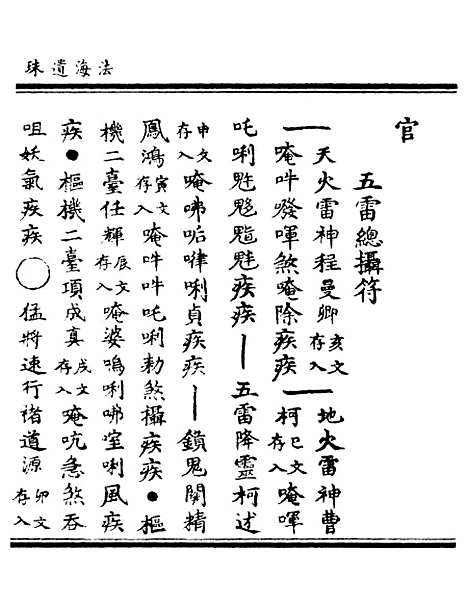 法海遺珠
官
五雷總攝符
一天火雷神程曼卿亥文存入一地火雷神曹
唵吽發暉煞唵除疾疾一柯巳文存入唵暉
吒唎魁䰢魓魅疾疾一五雷降靈柯述
申文存入唵咈㖃㗚唎貞疾疾一鎖鬼關精
鳳鴻寅文存入唵吽吽吒唎勑煞攝疾疾●樞
機二臺任輝辰文存入唵婆嗚唎咈窒唎風疾
疾●樞機二臺項成真戌文存入唵吭急煞吞
咀妖氣疾疾○猛將速行褚道源卯文存入